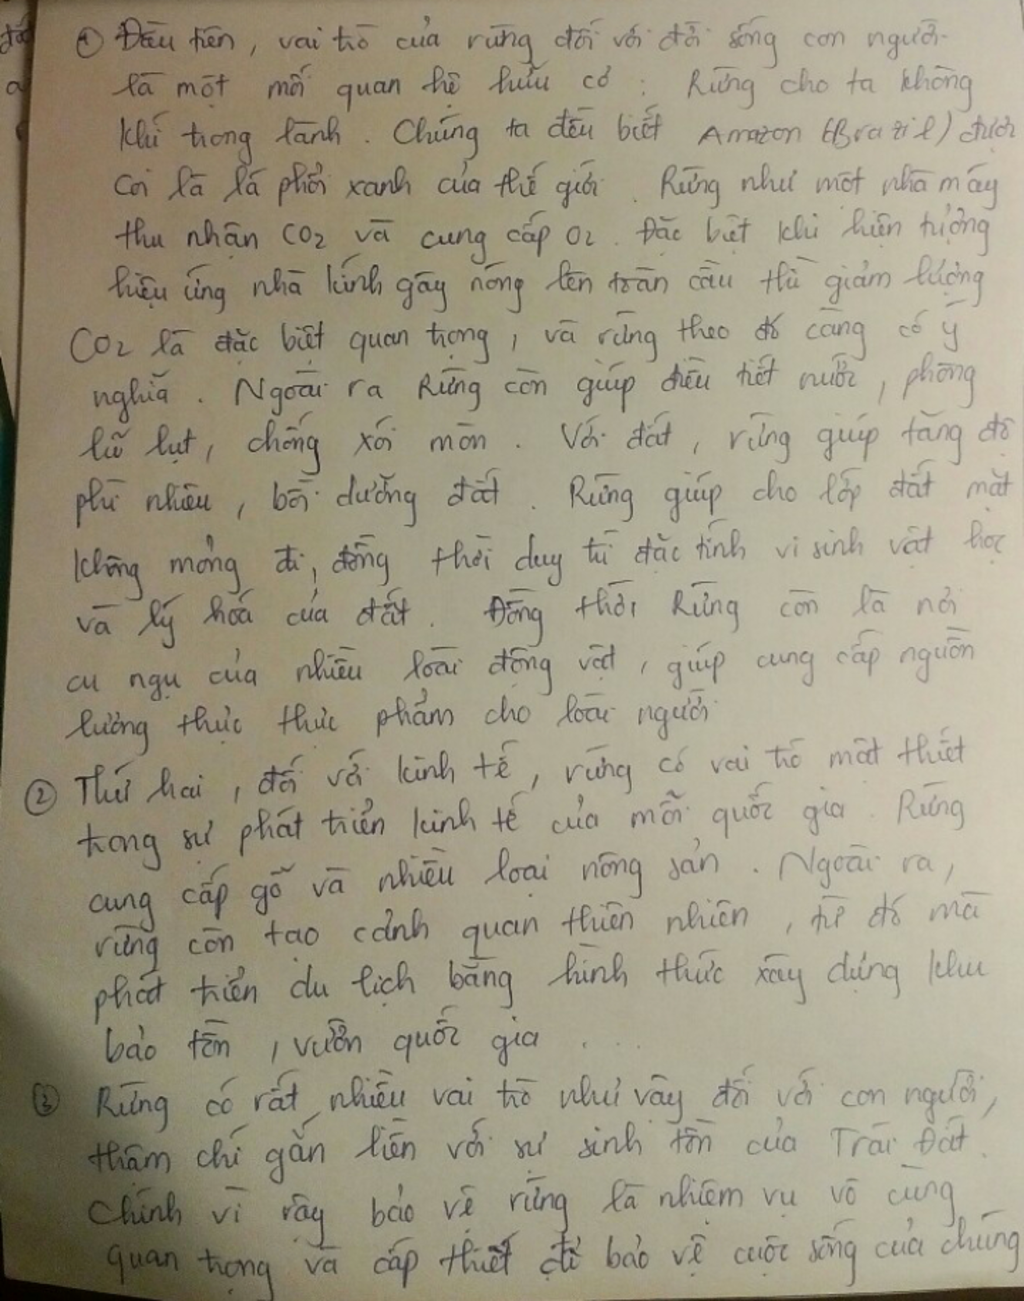 ① Đầu tiên, vai trò của rừng đối với đời sống con người
là một mối quan hệ hữu cơ : Rừng cho ta không
khí trong lành. Chúng ta đều biết Amazon (Brazil) được
coi là lá phổi xanh của thế giới. Rừng như một nhà máy
thu nhận CO2 và cung cấp O2. Đặc biệt khi hiện tượng
hiệu ứng nhà kính gây nóng lên toàn cầu thì giảm lượng
CO2 là đặc biệt quan trọng, và rừng theo đó càng có ý
nghĩa. Ngoài ra Rừng còn giúp điều tiết nước, phòng
lũ lụt, chống xói mòn. Với đất, rừng giúp tăng độ
phì nhiêu, bồi dưỡng đất. Rừng giúp cho lớp đất mặt
không mỏng đi, đồng thời duy trì đặc tính vi sinh vật học
và lý hoá của đất. Đồng thời Rừng còn là nơi
cư ngụ của nhiều loài động vật, giúp cung cấp nguồn
lương thực thực phẩm cho loài người
② Thứ hai, đối với kinh tế, rừng có vai trò mật thiết
trong sự phát triển kinh tế của mỗi quốc gia. Rừng
cung cấp gỗ và nhiều loại nông sản. Ngoài ra,
rừng còn tạo cảnh quan thiên nhiên, từ đó mà
phát triển du lịch bằng hình thức xây dựng khu
bảo tồn, vườn quốc gia ....
③ Rừng có rất nhiều vai trò như vậy đối với con người,
thậm chí gắn liền với sự sinh tồn của Trái Đất.
Chính vì vậy bảo vệ rừng là nhiệm vụ vô cùng
quan trọng và cấp thiết để bảo vệ cuộc sống của chúng